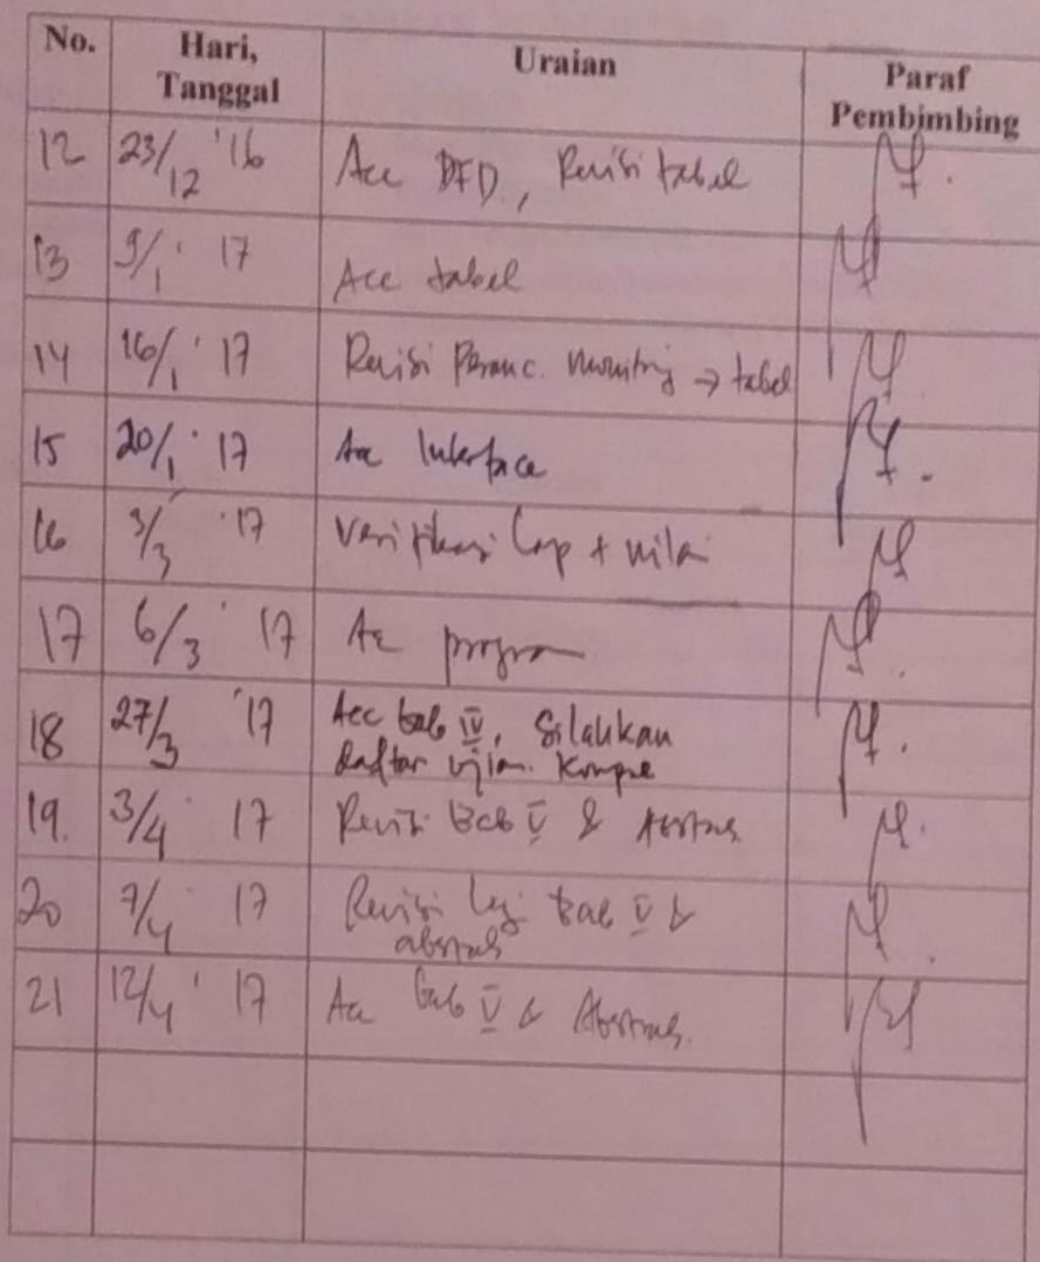 No. Hari, Tanggal Uraian Paraf Pembimbing
12 23/12 '16 Acc DFD, Revisi tabel
13 9/1 '17 Acc tabel
14 16/1 '17 Revisi Peranc. Monitring → tabel
15 20/1 '17 Acc Interface
16 3/3 '17 Verifikasi Lap + nilai
17 6/3 '17 Acc program
18 27/3 '17 Acc bab IV, Silahkan
daftar ujian Kompre
19. 3/4 '17 Revisi Bab V & Abstrak
20 7/4 '17 Revisi lagi Bab V &
abstrak
21 12/4 '17 Acc bab V & Abstrak.